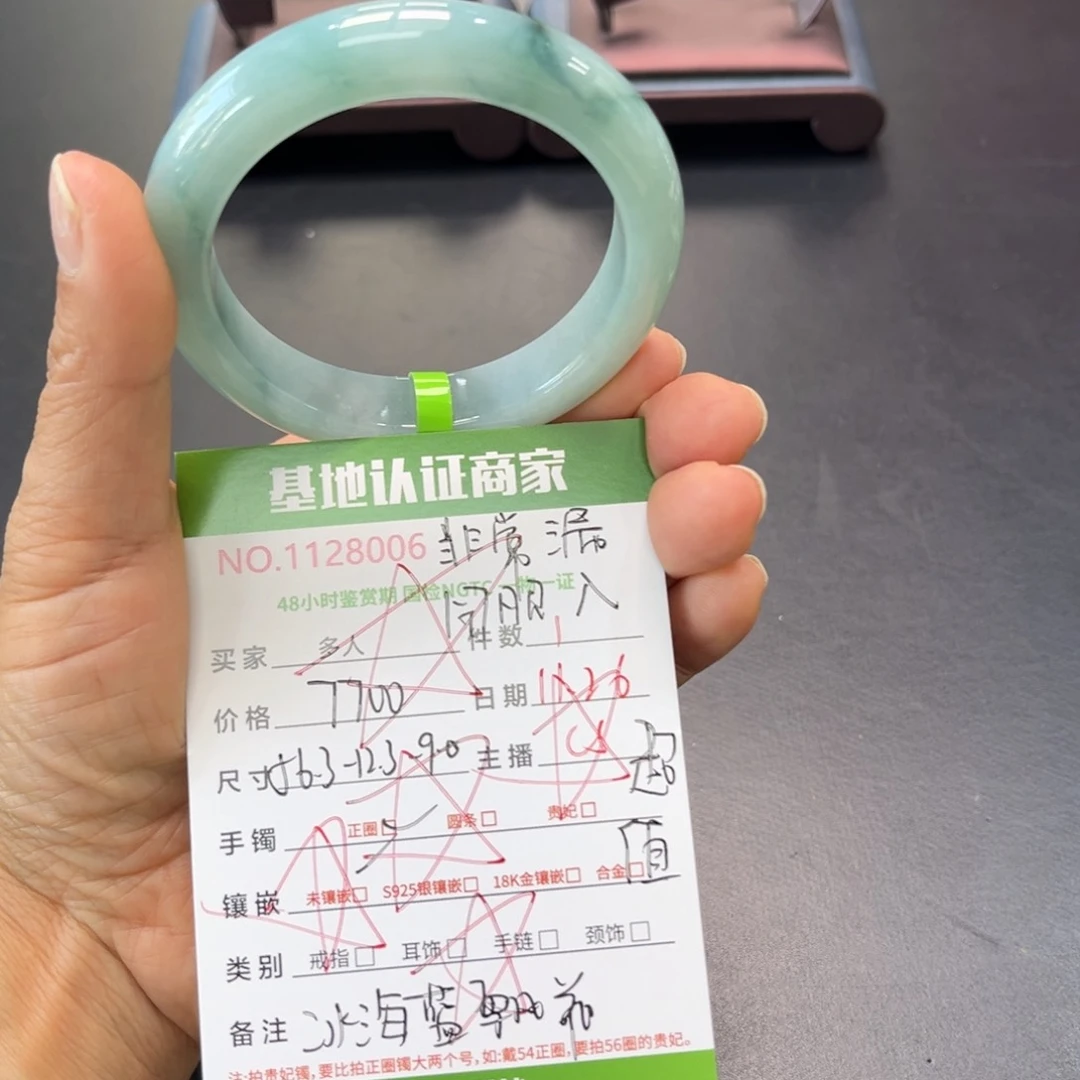 基地认证商家
NO.1128006 非常漂
48小时鉴赏期 国检NGTC 一物一证
买家 多人 件数 1
价格 7700 日期 11.26
尺寸 56.3-12.3-9.0 主播 CS
超值
手镯 正圈 圆条 贵妃
镶嵌 未镶嵌 S925银镶嵌 18K金镶嵌 合金
类别 戒指 耳饰 手链 颈饰
备注 冰海蓝飘花
注:拍贵妃镯,要比拍正圈镯大两个号,如:戴54正圈,要拍56圈的贵妃。